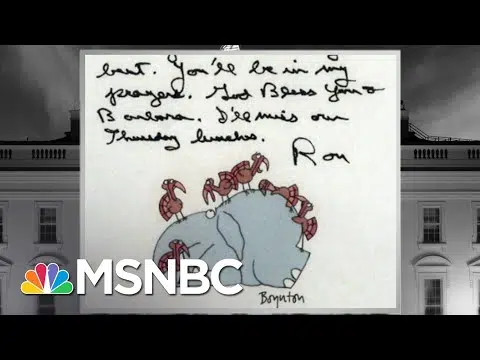 best. You'll be in my
prayers. God Bless You &
Barbara. I'll miss our
Thursday lunches.
Ron
Boynton
MSNBC